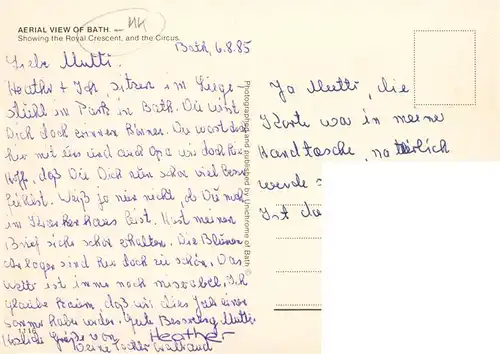 AERIAL VIEW OF BATH.
Showing the Royal Crescent, and the Circus.
Bath, 6.8.85
Liebe Mutti.
Heather + Ich, sitzen im Liege-
stühl im Park in Bath. Du wirst
Dich doch errinern können. Du warst doch
hier mit uns und auch Opa wir doch hier
Hoff, daß Du Dich nun schon viel besser
fühlst. Weiß ja nier nicht, ob Du noch
im Krankenhaus bist. Hast meinen
Brief sicher schon erhalten. Die Blümen
sind hier doch zu schön. Das
Wetter ist immer noch miserabel. Ich
glaube kaum, daß wir dies Jahr einen
sommer haben werden. Gute Besserung Mutti
Herzliche Grüße von Heather
Deine Tochter Waltraud
1110
Photographed and published by Unichrome of Bath ©
Ja Mutti, die
Karte war in meine
Handtasche, natürlich
werde
Ist du